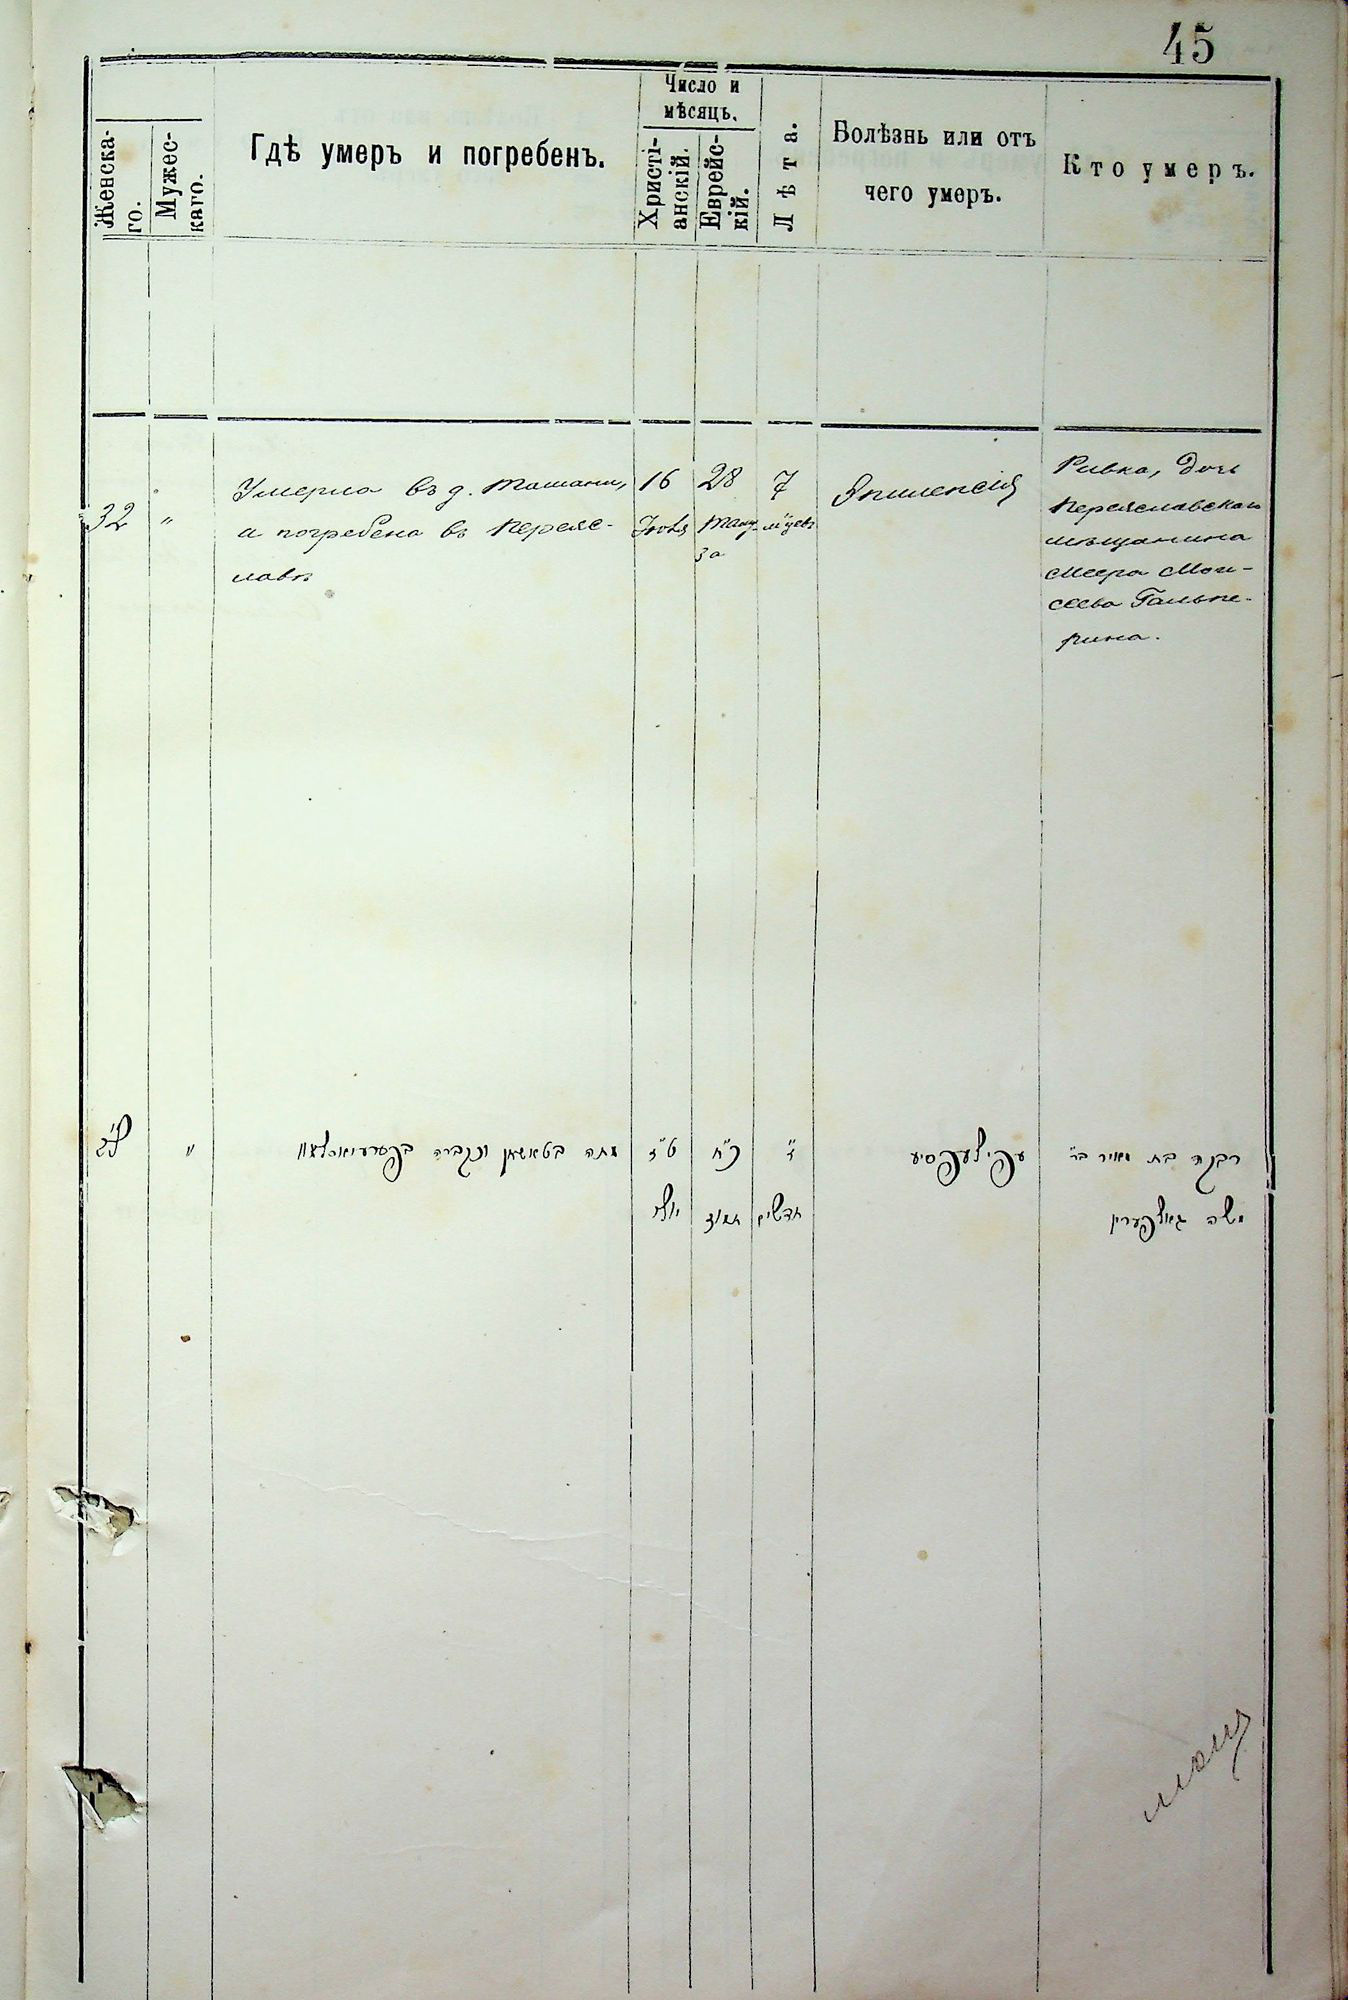 45
Женска-
го.
Мужес-
каго.
Гдѣ умеръ и погребенъ.
Число и
мѣсяцъ.
Христі-
анскій.
Еврейс-
кій.
Лѣта.
Болѣзнь или отъ
чего умеръ.
Кто умеръ.
32
"
Умерла въ д. Ташани,
а погребена въ Переяс-
лавѣ
16
Іюля
28
Таму-
за
7
м-цевъ
Эпилепсія
Ривка, дочь
Переяславскаго
мѣщанина
Меера Мои-
сеева Гальпе-
рина.
ל"ב
"
מתה בטאשאן ונקברה
ט"ז
יולי
כ"ח
תמוז
ז"
חדשים
עפילעפסיע
רבקה בת מאיר בר"
משה גאלפערין